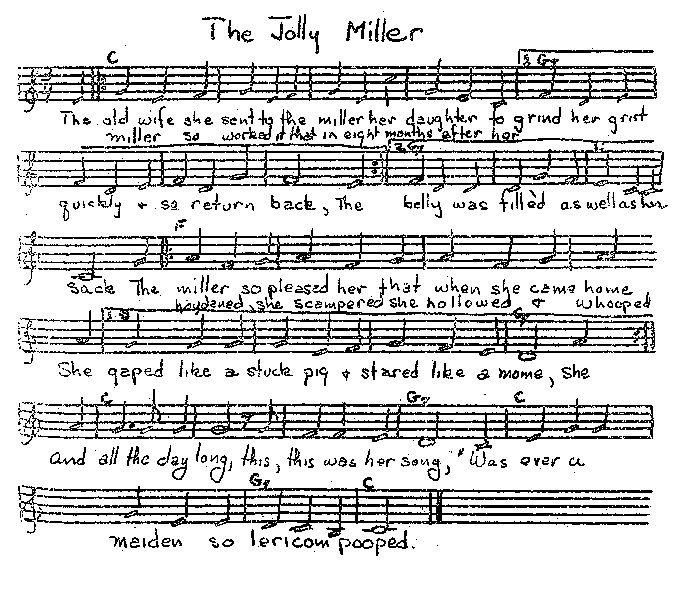 The Jolly Miller
C 1 G7
The old wife she sent to the miller her daughter to grind her grist
miller so worked it that in eight months after her
2 G7
quickly & so return back, The belly was filled as well as her
F
Sack The miller so pleased her that when she came home
hoydened, she scampered she hollowed & whooped
G7
She gaped like a stuck pig & stared like a mome, She
C G7 C
and all the day long, this, this was her song, "Was ever a
G7 C
maiden so lericompooped.